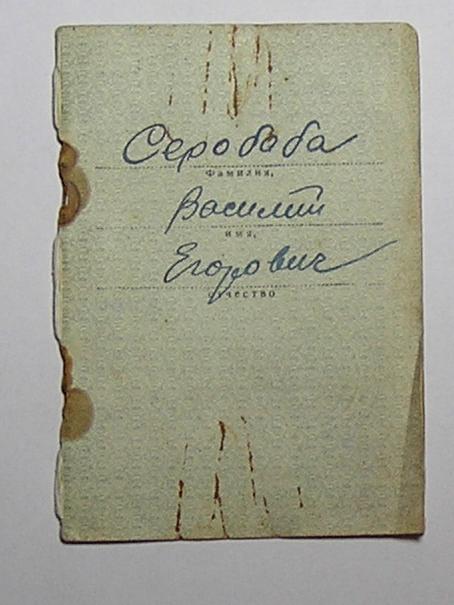 Серобаба
Фамилия,
Василий
имя,
Егорович
отчество